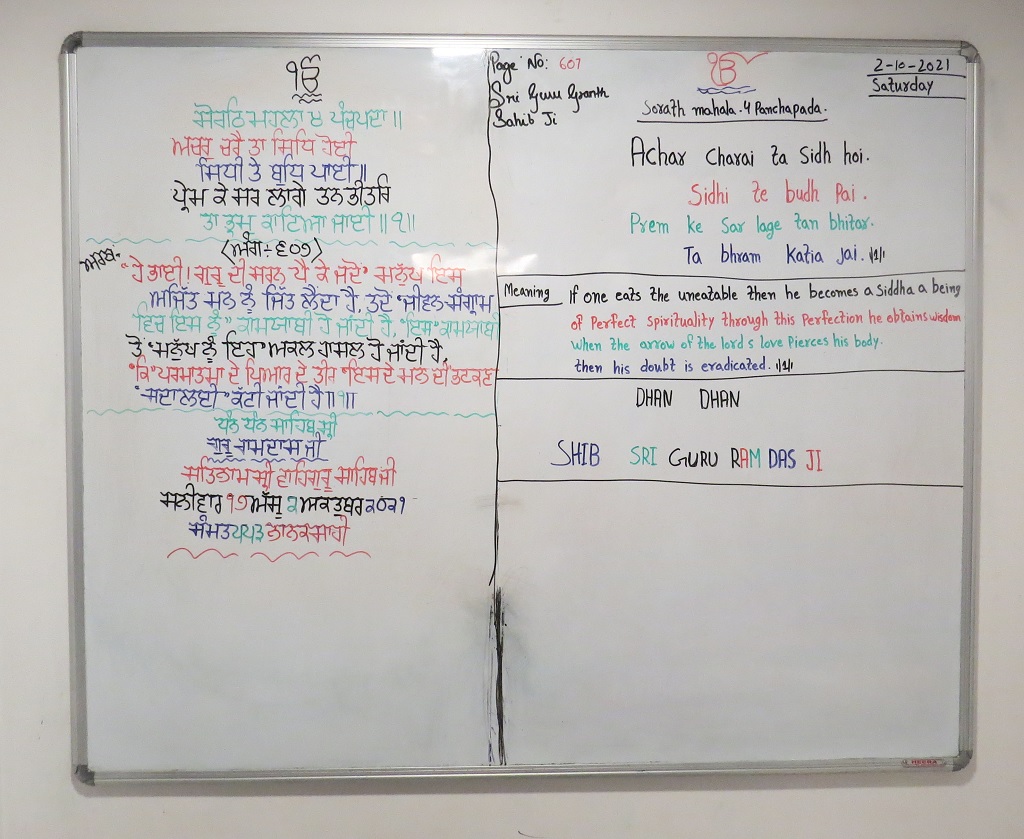 ੴ
ਸੋਰਠਿ ਮਹਲਾ ੪ ਪੰਚਪਦਾ ॥
ਅਚਰੁ ਚਰੈ ਤਾ ਸਿਧਿ ਹੋਈ
ਸਿਧੀ ਤੇ ਬੁਧਿ ਪਾਈ ॥
ਪ੍ਰੇਮ ਕੇ ਸਰ ਲਾਗੇ ਤਨ ਭੀਤਰਿ
ਤਾ ਭ੍ਰਮੁ ਕਾਟਿਆ ਜਾਈ ॥੧॥
(ਅੰਗ:-੬੦੭)
ਅਰਥ:- "ਹੇ ਭਾਈ! ਗੁਰੂ ਦੀ ਸਰਨ ਪੈ ਕੇ ਜਦੋਂ" ਮਨੁੱਖ ਇਸ
ਅਜਿੱਤ ਮਨ ਨੂੰ ਜਿੱਤ ਲੈਂਦਾ ਹੈ, ਤਦੋਂ "ਜੀਵਨ-ਸੰਗ੍ਰਾਮ
ਵਿਚ ਇਸ ਨੂੰ" ਕਾਮਯਾਬੀ ਹੋ ਜਾਂਦੀ ਹੈ, "ਇਸ" ਕਾਮਯਾਬੀ
ਤੋਂ "ਮਨੁੱਖ ਨੂੰ ਇਹ" ਅਕਲ ਹਾਸਲ ਹੋ ਜਾਂਦੀ ਹੈ,
"ਕਿ" ਪਰਮਾਤਮਾ ਦੇ ਪਿਆਰ ਦੇ ਤੀਰ "ਇਸ ਦੇ ਮਨ ਦੀ ਭਟਕਣਾ
"ਸਦਾ ਲਈ" ਕੱਟੀ ਜਾਂਦੀ ਹੈ ॥੧॥
ਧੰਨ ਧੰਨ ਸਾਹਿਬ ਸ੍ਰੀ
ਗੁਰੂ ਰਾਮਦਾਸ ਜੀ
ਸਤਿਨਾਮ ਸ੍ਰੀ ਵਾਹਿਗੁਰੂ ਸਾਹਿਬ ਜੀ
ਸ਼ਨੀਵਾਰ ੧੭ ਅੱਸੂ ੨ ਅਕਤੂਬਰ ੨੦੨੧
ਸੰਮਤ ੫੫੩ ਨਾਨਕਸ਼ਾਹੀ
Page No: 607
Sri Guru Granth
Sahib Ji
ੴ
2-10-2021
Saturday
Sorath mahala.4 Panchapada.
Achar Charai ta Sidh hoi.
Sidhi te budh Pai.
Prem ke Sar lage tan bhitar.
Ta bhram Katia jai.॥1॥
Meaning If one eats the uneatable then he becomes a Siddha a being
of Perfect Spirituality through this Perfection he obtains wisdom
when the arrow of the lord s love Pierces his body.
then his doubt is eradicated.॥1॥
DHAN DHAN
SHIB SRI GURU RAM DAS JI